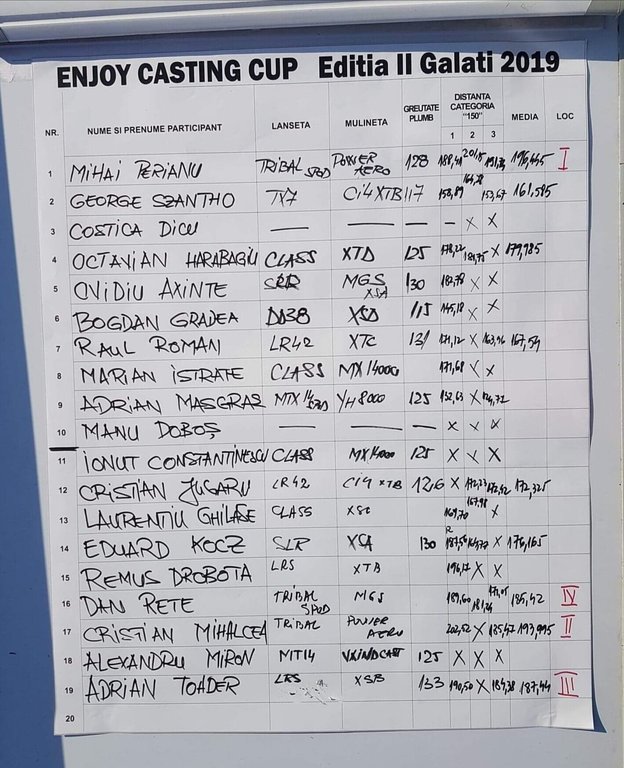 ENJOY CASTING CUP Editia II Galati 2019
NR. NUME SI PRENUME PARTICIPANT LANSETA MULINETA GREUTATE PLUMB DISTANTA CATEGORIA "150" 1 2 3 MEDIA LOC
1 MIHAI PERIANU TRIBAL SPOD POWER AERO 128 196,445 I
2 GEORGE SZANTHO TX7 Ci4 XTB 117 153,89 153,67 161,585
3 COSTICA DICU — — — – X X
4 OCTAVIAN HARABAGIU CLASS XTD 125 178,22 181,75 X 179,985
5 OVIDIU AXINTE SLR MGS XSA 130 182,78 X X
6 BOGDAN GRADEA XSD 115 145,18 X X
7 RAUL ROMAN LR42 XTC 131 171,12 X 163,96 167,54
8 MARIAN ISTRATE CLASS MX14000 171,68 X X
9 ADRIAN MASGRAS MTX14 SPOD YH8000 125 132,63 X 124,72
10 MANU DOBOȘ — — — X X X
11 IONUT CONSTANTINESCU CLASS MX14000 125 X X X
12 CRISTIAN JUGARU LR42 Ci4 XTB 126 X 172,23 172,42 172,325
13 LAURENTIU GHILASE CLASS XSC 169,70 167,98 X
14 EDUARD KOCZ SLR XSA 130 187,56 164,77 X 176,165
15 REMUS DROBOTA LRS XTB 196,17 X X
16 DAN RETE TRIBAL SPOD MGS 189,60 181,24 171,05 185,42 IV
17 CRISTIAN MIHALCEA TRIBAL POWER AERO 202,52 X 185,47 193,995 II
18 ALEXANDRU MIRON MT14 125 X X X
19 ADRIAN TOADER LRS XSB 133 190,50 X 184,38 187,44 III
20